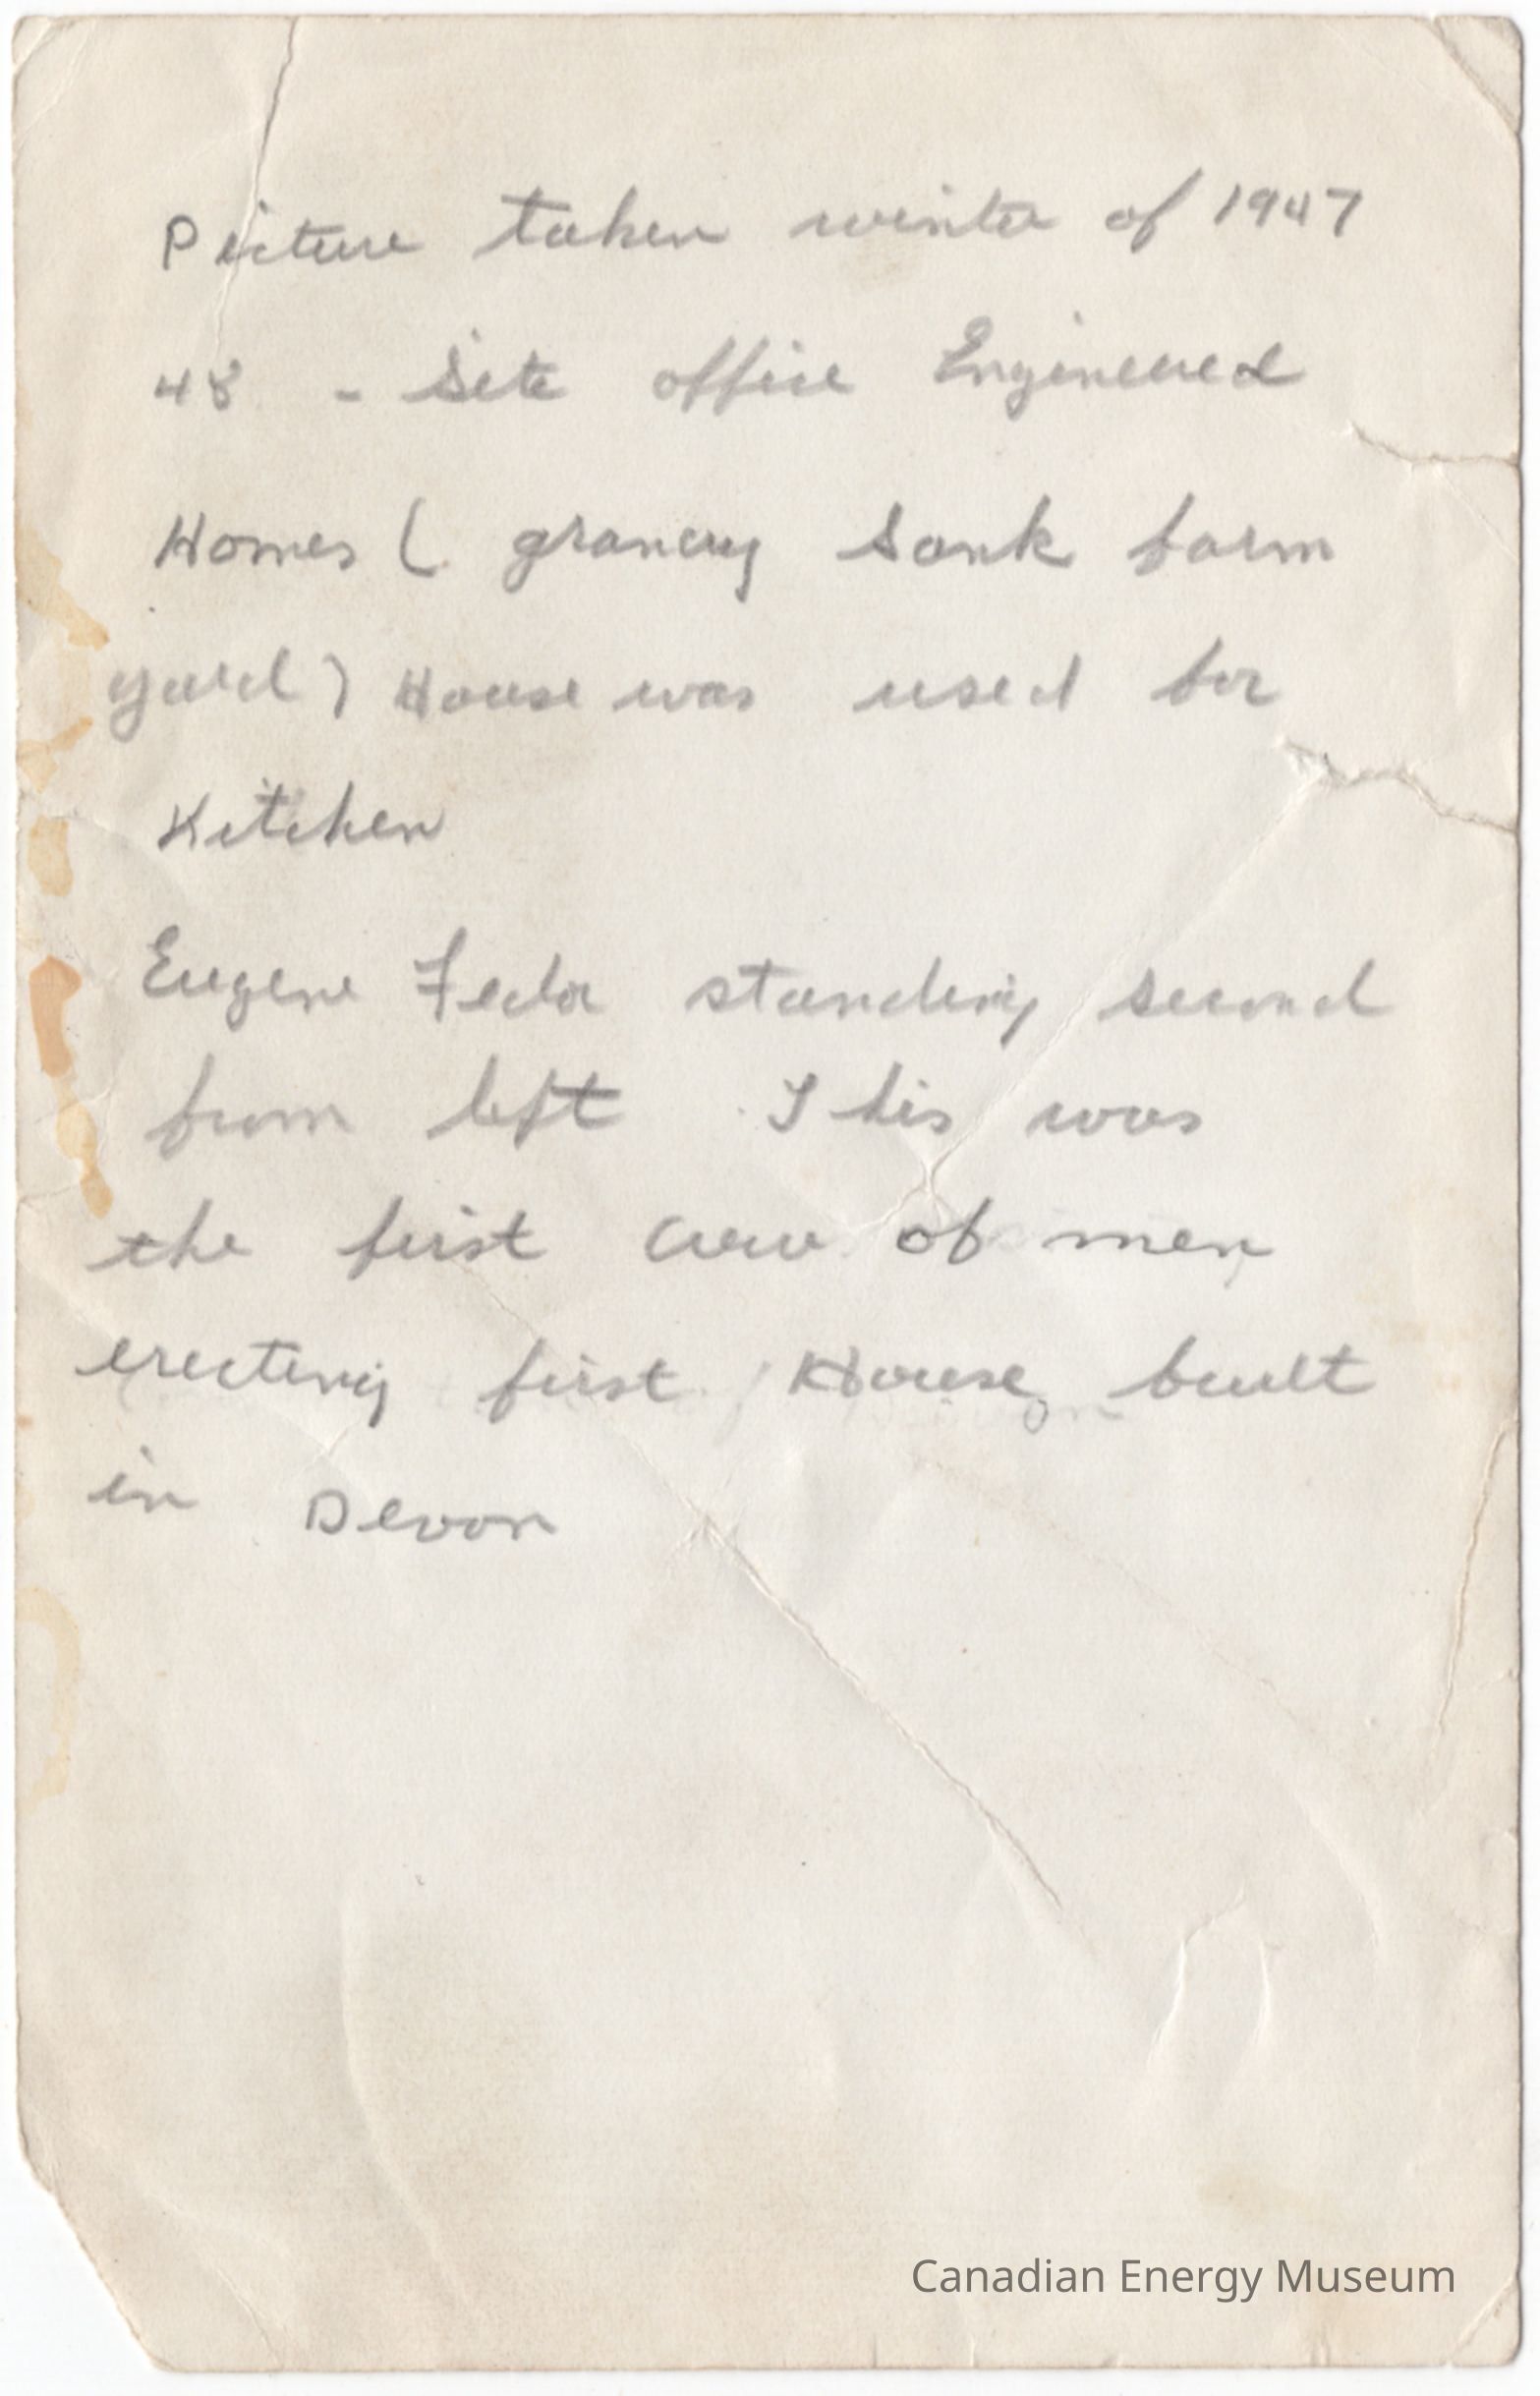 Picture taken winter of 1947
48 - Site office Engineered
Homes ( granery Sank farm
yard) House was used for
Kitchen
Eugene Fedor standing second
from left This was
the first crew of men
erecting first House built
in Devon
Canadian Energy Museum